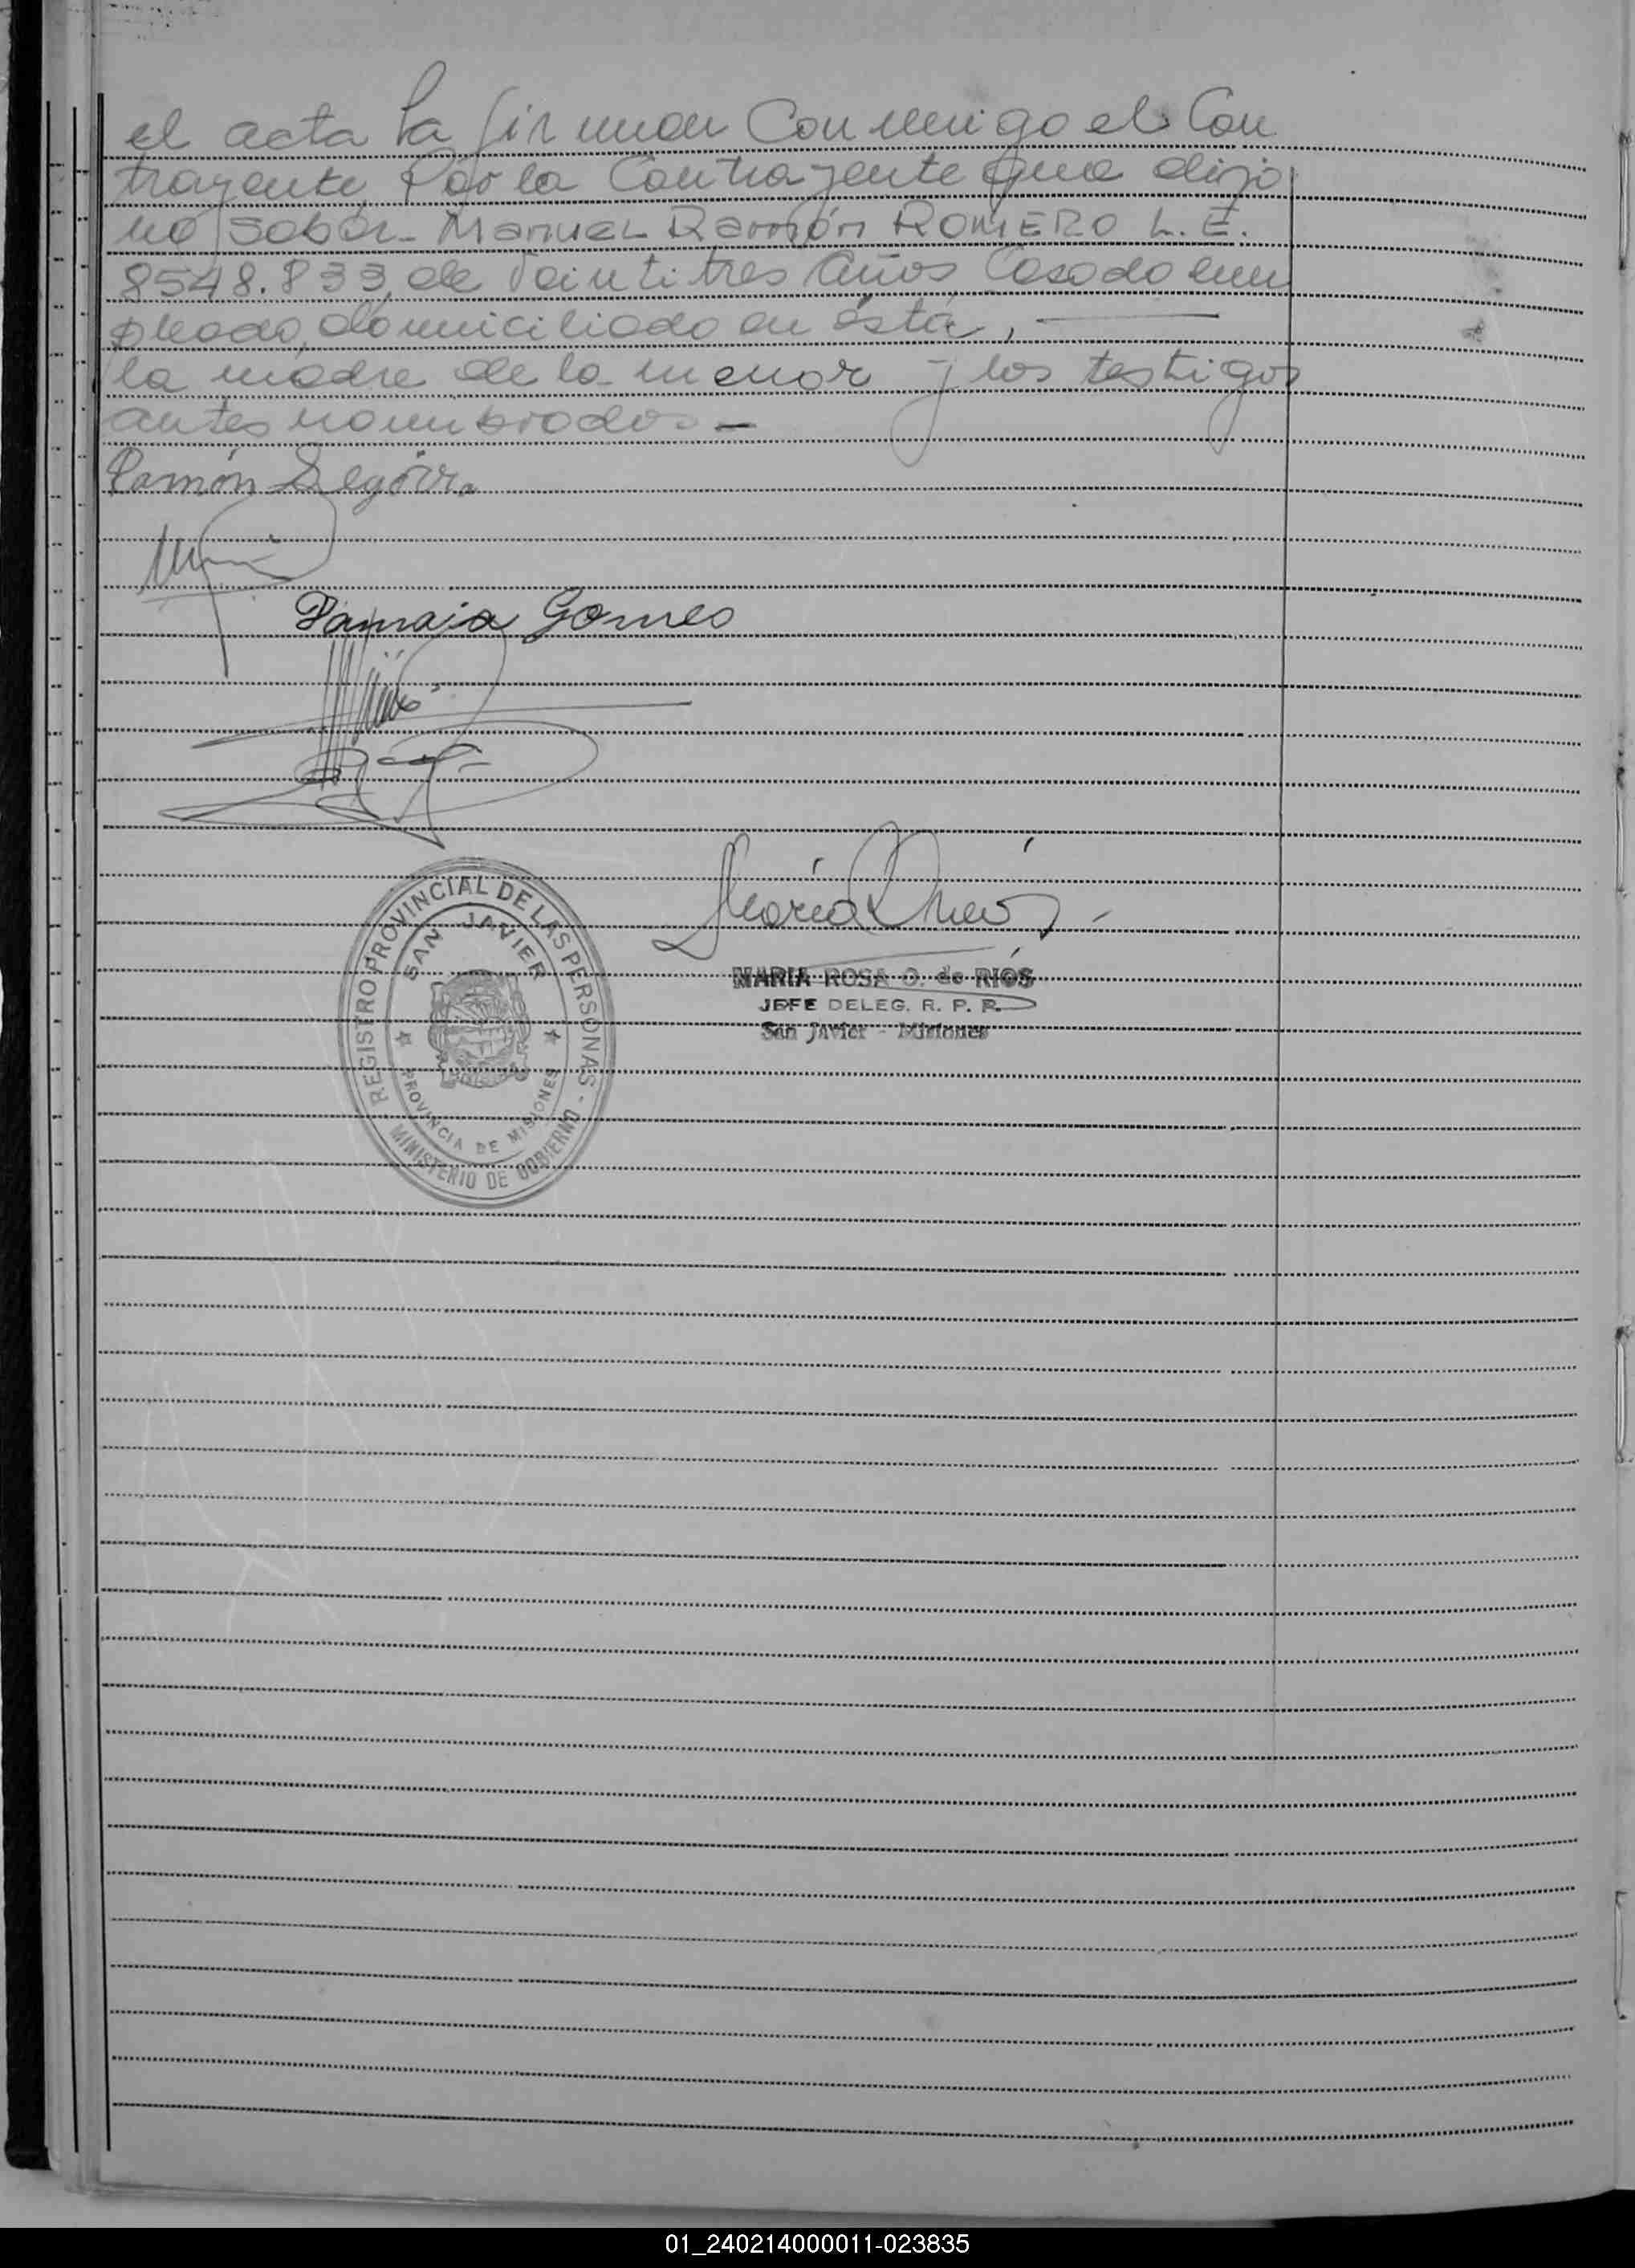 el acta la firman Conmigo el Con
trayente, Por la Contrayente que dijo
no saber - Manuel Ramón ROMERO L. E.
8548.833, de Veintitres Años, Casado em
pleado, domiciliado en ésta, ———
la madre de la menor y los testigos
antes nombrados. —
Ramón Segovia
Gomes
María
MARIA ROSA O. de RIOS
JEFE DELEG. R. P. P.
San Javier - Misiones
REGISTRO PROVINCIAL DE LAS PERSONAS -
MINISTERIO DE GOBIERNO
SAN JAVIER
PROVINCIA DE MISIONES
01_240214000011-023835